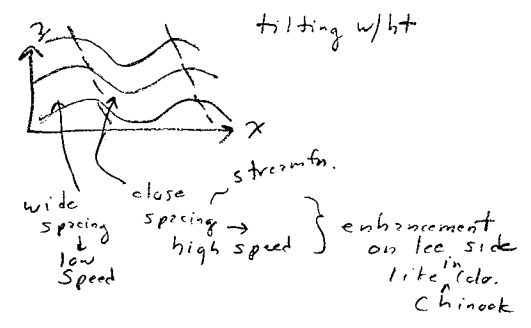 z
tilting w/ht
x
streamfn.
wide
spacing
↓
low
speed
close
spacing →
high speed
enhancement
on lee side
like in Colo.
Chinook